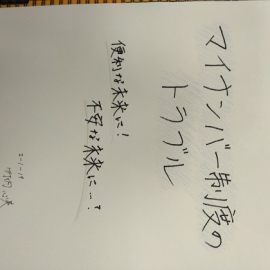 マイナンバー制度の
トラブル
便利な未来に!
不安な未来に…?
2-1-19